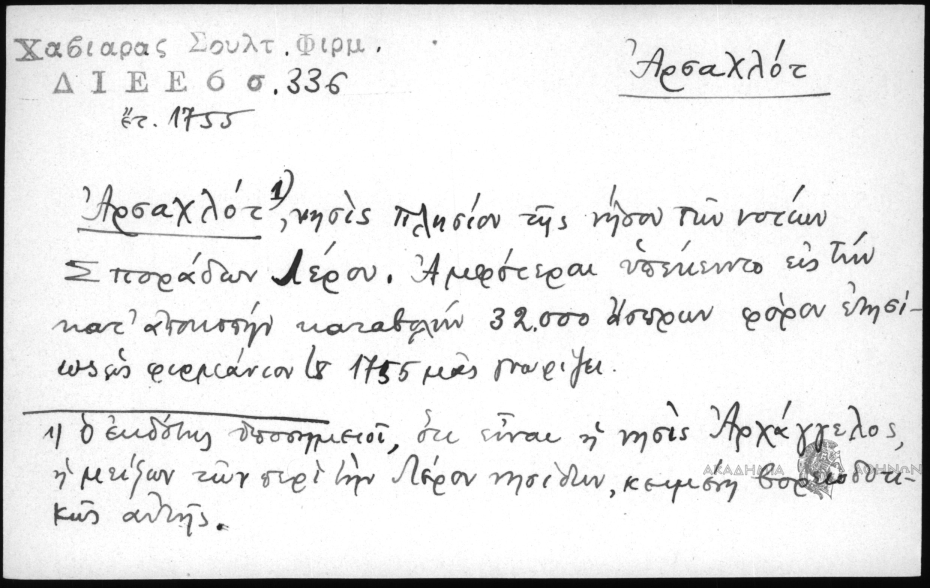 Χαβιαρας Σουλτ. Φιρμ.
Ἀρσαχλότ
Δ Ι Ε Ε 6 σ. 336
ἔτ. 1755
Ἀρσαχλότ 1), νησὶς πλησίον τῆς νήσου τῶν νοτίων
Σποράδων Λέρου. Ἀμφότεραι ὑπέκειντο εἰς τὴν
κατ' ἀποκοπὴν καταβολὴν 32.500 ἄσπρων φόρον ἐτησί-
ως ὡς φιρμάνιον τοῦ 1755 μᾶς γνωρίζει.
1) ὁ ἐκδότης ὑποσημειοῖ, ὅτι εἶναι ἡ νησὶς Ἀρχάγγελος,
ἡ μείζων τῶν περὶ τὴν Λέρον νησίδων, κειμένη βορειοδυτι-
κῶς αὐτῆς.
ΑΚΑΔΗΜΙΑ ΑΘΗΝΩΝ